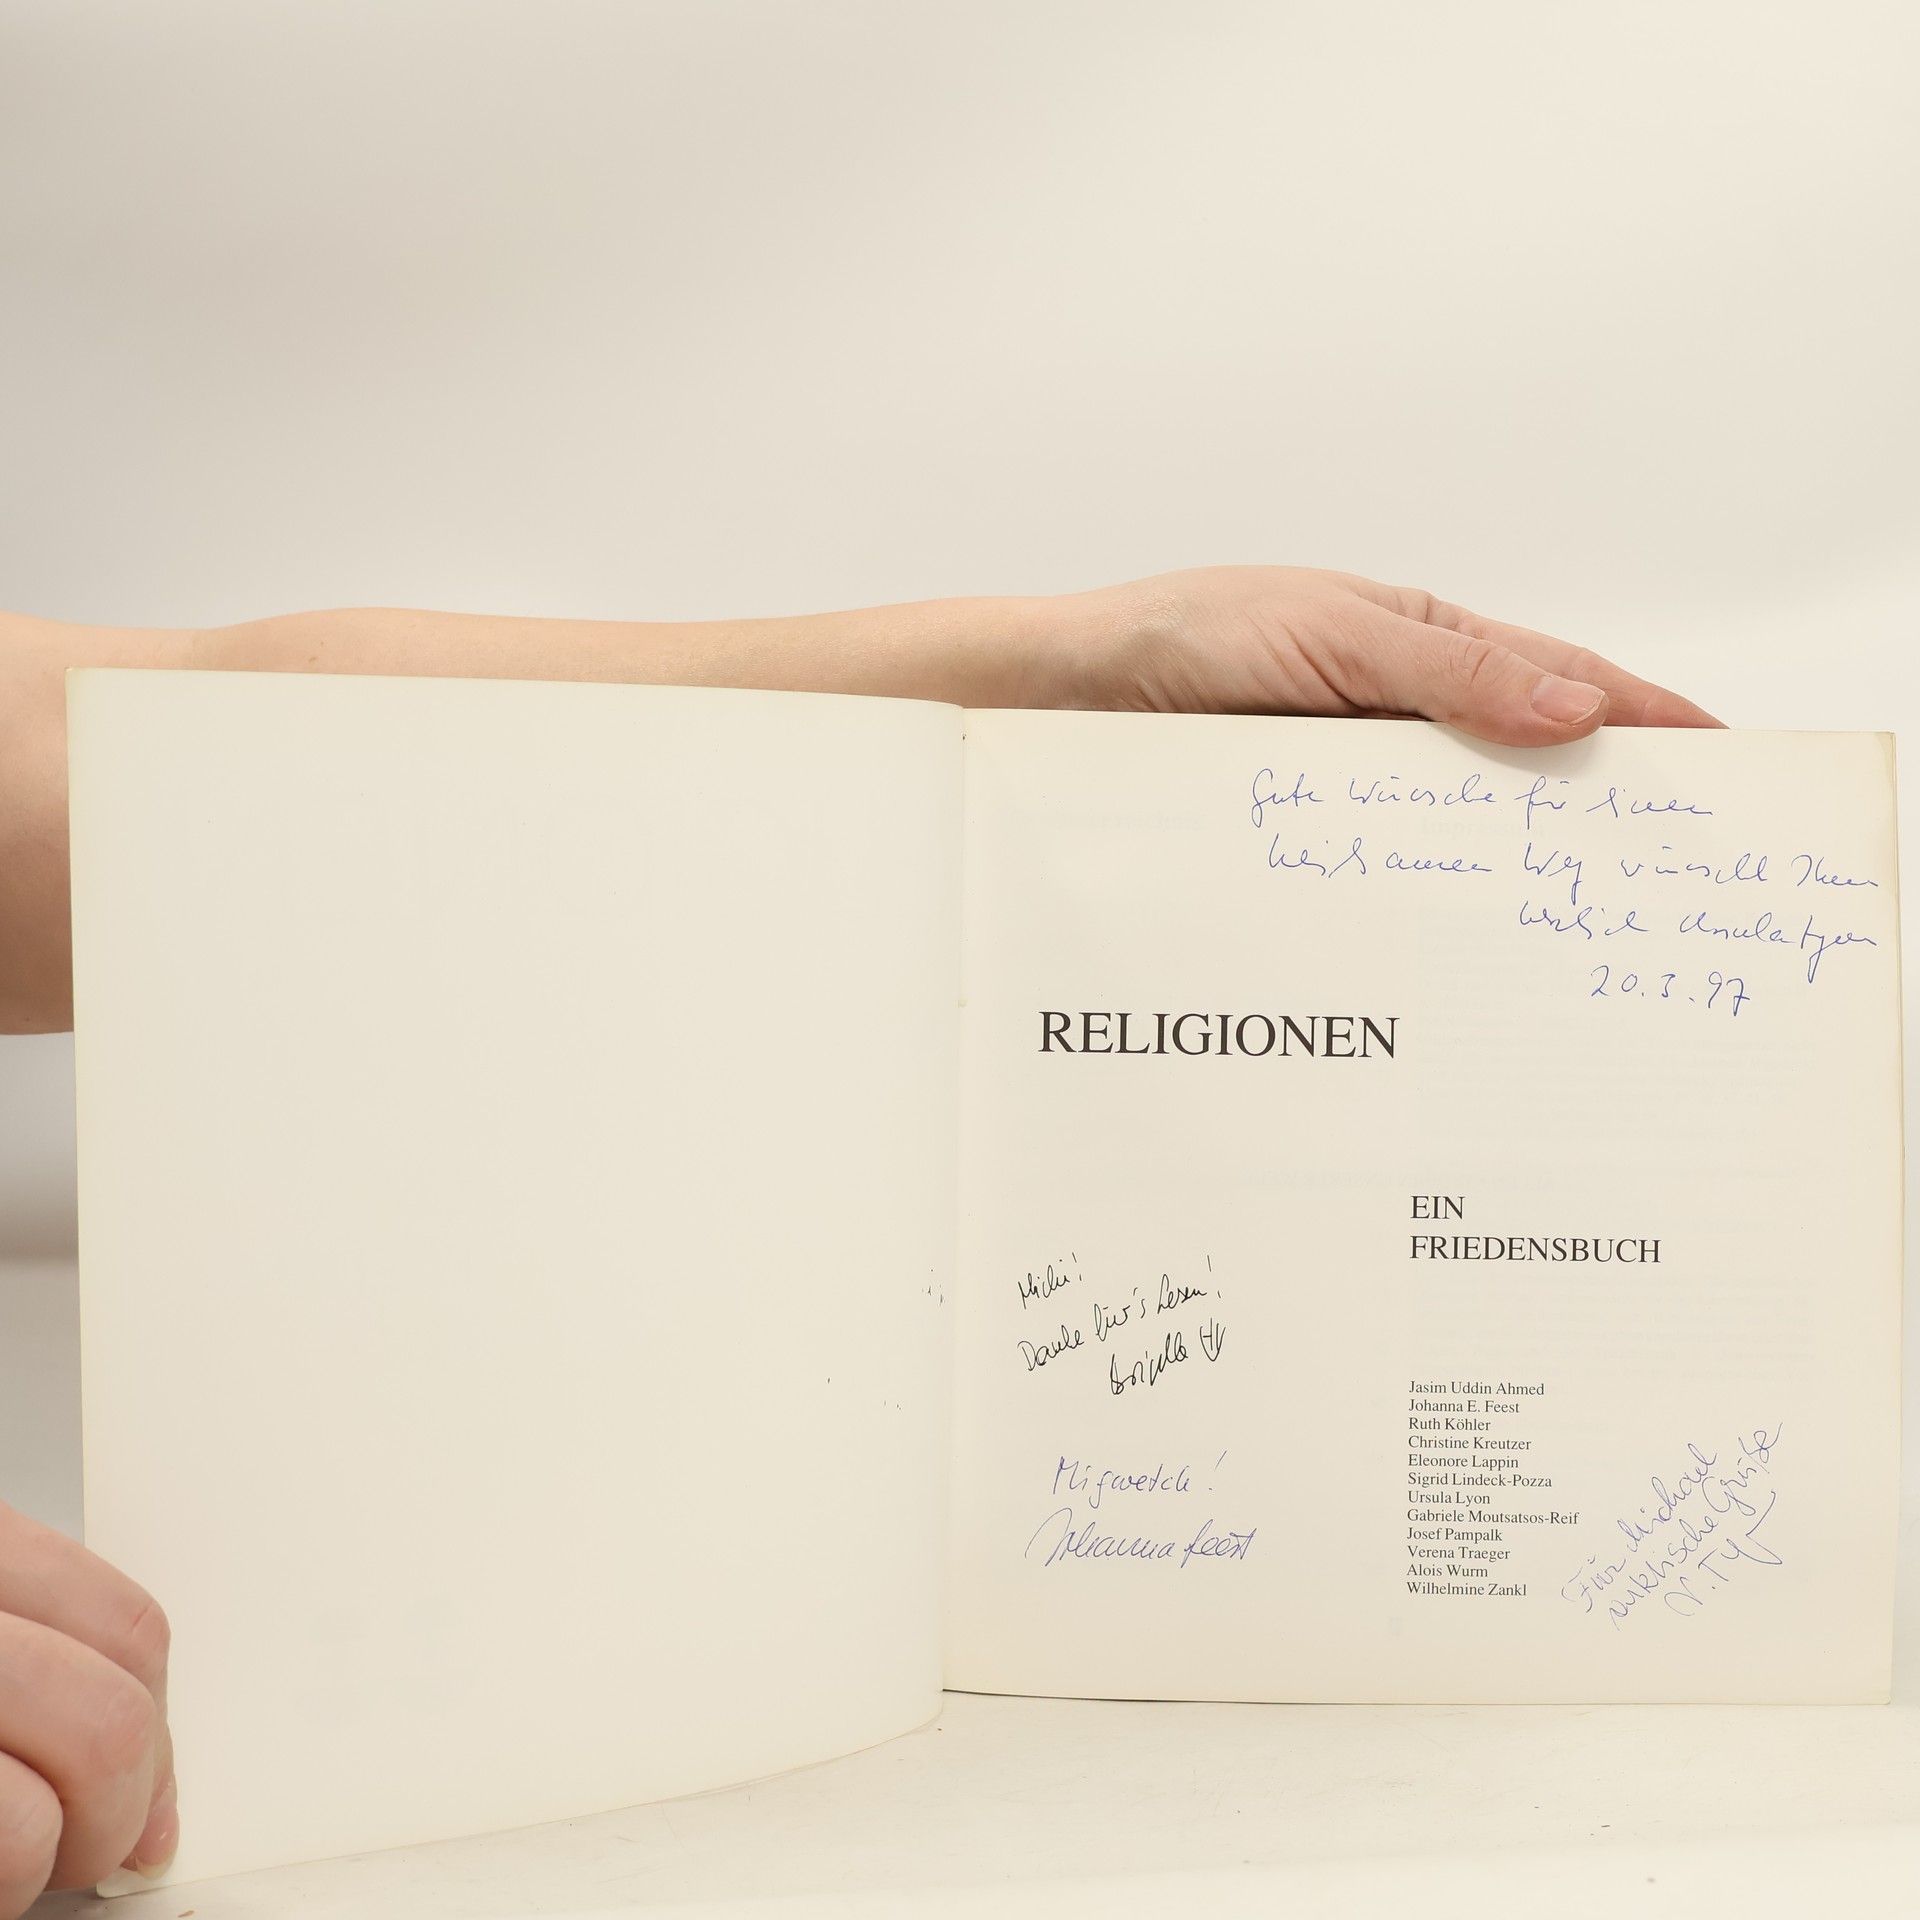 Gute Wünsche für einen
heilsamen Weg wünscht Ihnen
herzlich Ursula Lyon
20.3.97
RELIGIONEN
EIN
FRIEDENSBUCH
Michi!
Danke für's Lesen!
Migwetch!
Johanna Feest
Jasim Uddin Ahmed
Johanna E. Feest
Ruth Köhler
Christine Kreutzer
Eleonore Lappin
Sigrid Lindeck-Pozza
Ursula Lyon
Gabriele Moutsatsos-Reif
Josef Pampalk
Verena Traeger
Alois Wurm
Wilhelmine Zankl
Für Michael
arktische Grüße
V. T